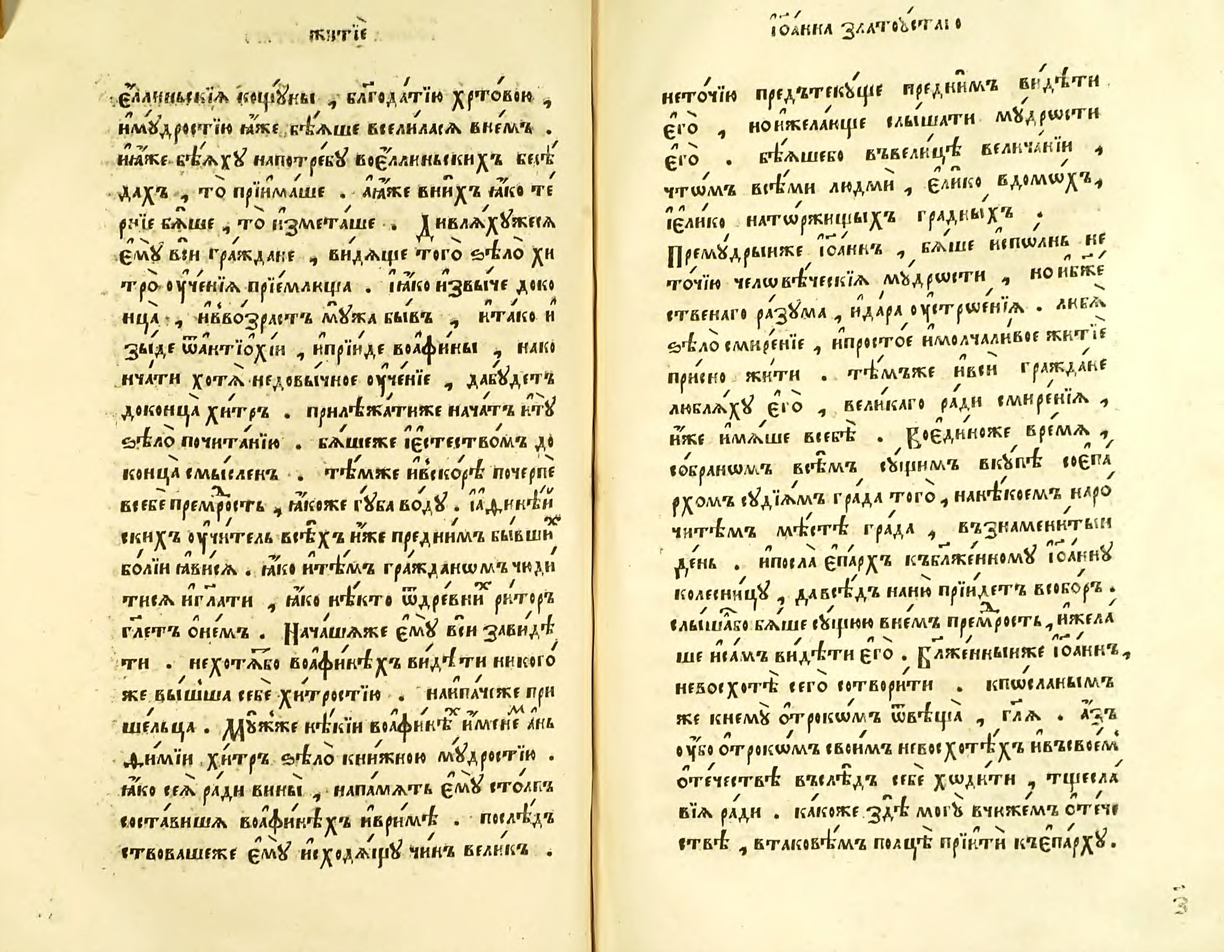 житїѐ
є҆́ллиньскїѧ кощꙋ́ны , благода́тїю хр҃то́вою ,
и҆мꙋ́дростїю ꙗ҆́же бѣ́ѧше всели́ласѧ вне́мъ .
и҆ꙗ҆́же бѣ́ѧхꙋ напотре́бꙋ воє҆́ллиньскихъ бесѣ́
дахъ , то̀ прїима́ше . а҆ꙗ҆́же вни́хъ ꙗ҆́ко те́
рнїе бѧ́ше , то̀ и҆змета́ше . Дивлѧ́хꙋжесѧ
є҆мꙋ̀ всѝ гра́ждане , ви́дѧще того̀ ѕѣло̀ хи
тро̀ оу҆че́нїѧ прїе́млюща . ꙗ҆́ко и҆звы́че доко
нца̀ , и҆ввозра́стъ мꙋ́жа бы́въ , и҆та́ко и҆
зы́де ѿа҆нтїо́хїи , и҆прїи́де воа҆фи́ны , нако
нча́ти хотѧ̀ недовы́чное оу҆че́нїе , дабꙋ́детъ
доконца̀ хи́тръ . прилѣжа́тиже нача́тъ и҆тꙋ̀
ѕѣло̀ почита́нїю . бѧ́шеже і҆є҆стество́мъ до
конца̀ смы́сленъ . тѣ́мже и҆вско́рѣ почерпѐ
всебѐ премрⷣость , ꙗ҆́коже гꙋ́ба во́дꙋ . і҆а҆ѳинѣ́й
скихъ оу҆чи́тель всѣ́хъ и҆́же преднимъ бы́вшиⷯ
бо́лїи ꙗ҆ви́сѧ . ꙗ҆́ко и҆тѣ́мъ гра́жданѡмъ чюди́
тисѧ и҆гл҃ати , ꙗ҆́ко нѣ́кто ѿдре́вниⷯ ри́торъ
гл҃етъ о҆не́мъ . Нача́шѧже є҆мꙋ̀ всѝ зави́дѣ
ти . нехотѧ́бо воа҆фи́нѣхъ ви́дѣти никого̀
же вы́шша себѐ хи́тростїю . наи҆па́чеже при
ше́льца . Мꙋ́жже нѣ́кїи воа҆фи́нѣⷯ и҆́менеⷨ а҆н
ѳи́мїи хи́тръ ѕѣло̀ кни́жною мꙋ́дростїю .
ꙗ҆́ко сеѧ̀ ра́ди вины̀ , напа́мѧть є҆мꙋ̀ сто́лпъ
соста́вишѧ воа҆фи́нѣхъ и҆ври́мѣ . послѣ́дъ
ствовашеже є҆мꙋ̀ и҆сходѧ́щꙋ чи́нъ вели́къ .
і҆ѡа́нна златоꙋ́стаго
нето́чїю предътекꙋ́ще предни́мъ ви́дѣти
є҆го̀ , нои҆жела́юще слы́шати мꙋ́дрѡсти
є҆го̀ . бѣ́ѧшебо въвели́цѣ велича́нїи ,
что́мъ всѣ́ми людмѝ , є҆ли́ко вдомѡ́хъ,
і҆є҆ли́ко натѡ́ржищыхъ гра́дныхъ .
Премꙋ́дрыиже і҆ѡа́ннъ , бѧ́ше и҆спо́лнь не
то́чїю человѣ́ческїѧ мꙋ́дрѡсти , нои҆бж҃е
ственаго ра́зума , и҆да́ра оу҆стрѡе́нїѧ . любѧ̀
ѕѣло̀ смире́нїе , и҆просто́е и҆молчали́вое житїѐ
при́сно жи́ти . тѣ́мъже и҆всѝ гра́ждане
люблѧ́хꙋ є҆го̀ , вели́каго ра́ди смире́нїѧ ,
и҆́же и҆мѧ́ше всебѣ̀ . Воє҆ди́ноже вре́мѧ ,
со́браномъ всѣ́мъ сꙋ́щимъ вкꙋ́пѣ соє҆па́
рхомъ сꙋдїѧ́мъ гра́да того̀ , нанѣ́коемъ наро
чи́тѣмъ мѣ́стѣ гра́да , възнамени́тыи
де́нь . и҆посла̀ є҆па́рхъ къбл҃же́нному і҆ѡа́нну
колесни́цу , давсѣ́дъ наню̀ прїи́детъ всобо́ръ .
слы́шалбо бѧ́ше сꙋ́щюю вне́мъ премрⷣость , и҆жела́
ше и҆са́мъ ви́дѣти є҆го̀ . Бл҃же́нныиже і҆ѡа́ннъ,
невосхотѣ̀ сего̀ сотвори́ти . кпо́сланымъ
же кнемꙋ̀ о҆́трокѡмъ ѿвѣща̀ , гл҃ѧ . а҆́зъ
оу҆́бо о҆́трокѡмъ свои́мъ невосхотѣ́хъ и҆въсвое́м
о҆те́чествѣ въслѣ́дъ себѐ хѡди́ти , тщесла́
вїѧ ра́ди . ка́коже здѣ̀ могꙋ̀ вчюже́мъ о҆те́че
ствѣ , втаковѣ́мъ полцѣ̀ прїитѝ къє҆па́рхꙋ .
з҃